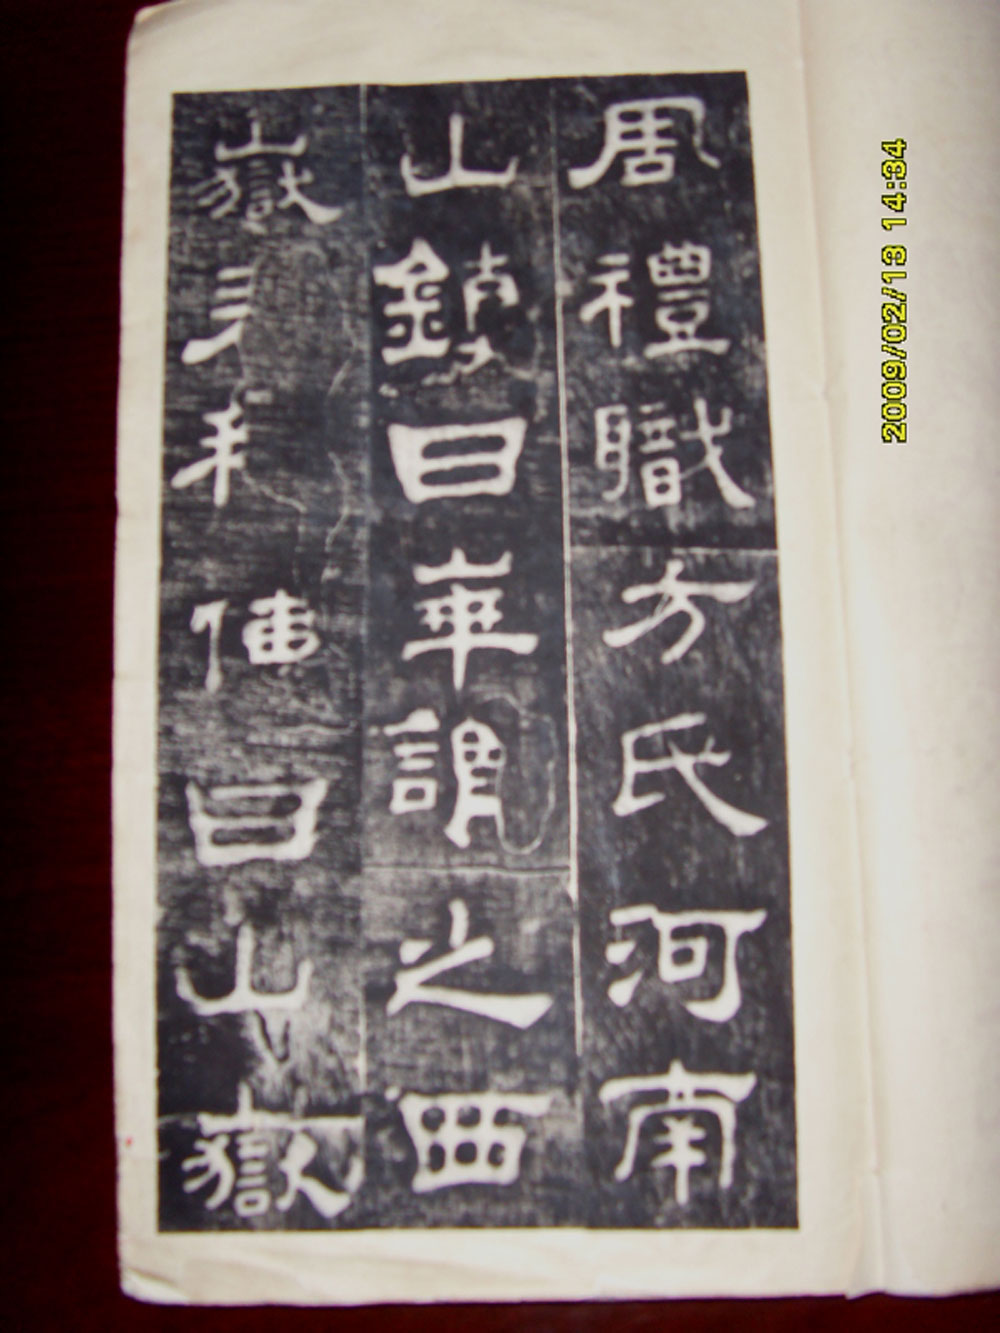 周禮職方氏河南
山鎮曰崋謂之西
嶽春秋傳曰山嶽
2009/02/13 14:34